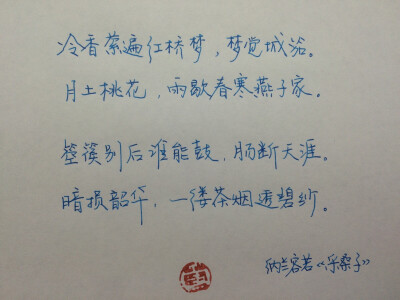 冷香萦遍红桥梦，梦觉城笳。
月上桃花，雨歇春寒燕子家。
箜篌别后谁能鼓，肠断天涯。
暗损韶华，一缕茶烟透碧纱。
纳兰容若《采桑子》